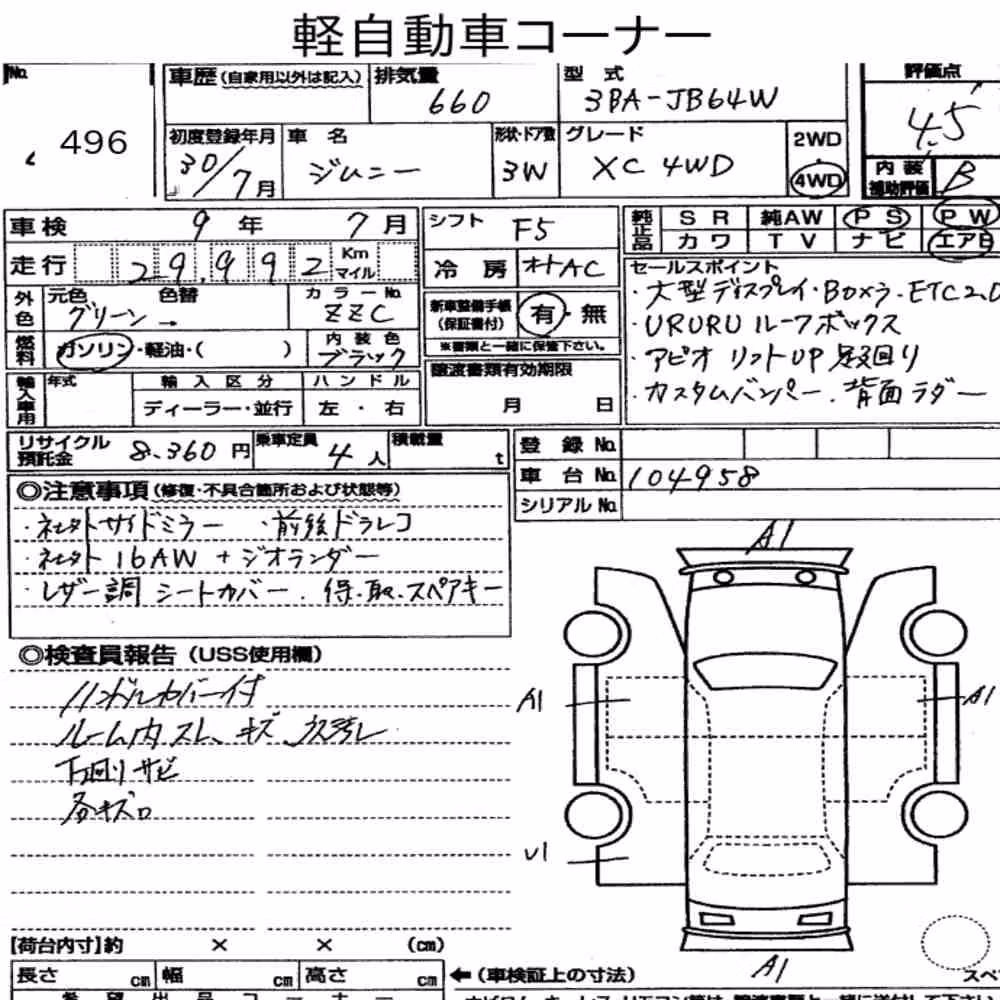 軽自動車コーナー
No. 496
車歴(自家用以外は記入) 排気量 660 型式 3BA-JB64W 評価点 4.5
初度登録年月 30/7月 車名 ジムニー 形状・ドア数 3W グレード XC 4WD 2WD 4WD 内装補助評価 B
車検 9年 7月 シフト F5 純正品 SR 純AW PS PW
走行 29,992 Km マイル 冷房 オートAC カワ TV ナビ エアB
外色 元色 グリーン 色替 → カラーNo. ZZC 新車整備手帳(保証書付) 有・無
※書類と一緒に保管下さい。
燃料 ガソリン・軽油・( ) 内装色 ブラック
セールスポイント
・大型ディスプレイ・Boxラ・ETC2.0
・URURU ルーフボックス
・アピオ リフトUP 足回り
・カスタムバンパー．背面ラダー
輸入車用 年式 輸入区分 ハンドル 譲渡書類有効期限
ディーラー・並行 左・右 月 日
リサイクル預託金 8,360円 乗車定員 4人 積載量 t
登録No.
車台No. 104958
シリアルNo.
◎注意事項(修復・不具合箇所および状態等)
・社外サイドミラー ・前後ドラレコ
・社外16AW + ジオランダー
・レザー調 シートカバー．保・取・スペアキー
◎検査員報告(USS使用欄)
ハンドルカバー付
ルーム内スレ、キズ、汚レ
下廻りサビ
各キズ
A1
A1
A1
U1
A1
[荷台内寸]約 × × (cm)
長さ cm 幅 cm 高さ cm ←(車検証上の寸法)
スペ
希望出品コーナー